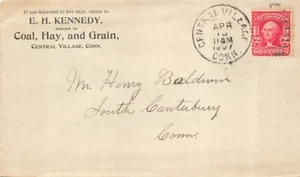 If not delivered in five days, return to
E. H. KENNEDY,
DEALER IN
Coal, Hay, and Grain,
CENTRAL VILLAGE, CONN.
CENTRAL VILLAGE
APR
11AM
CONN.
Mr. Henry Baldwin
South Canterbury
Conn.